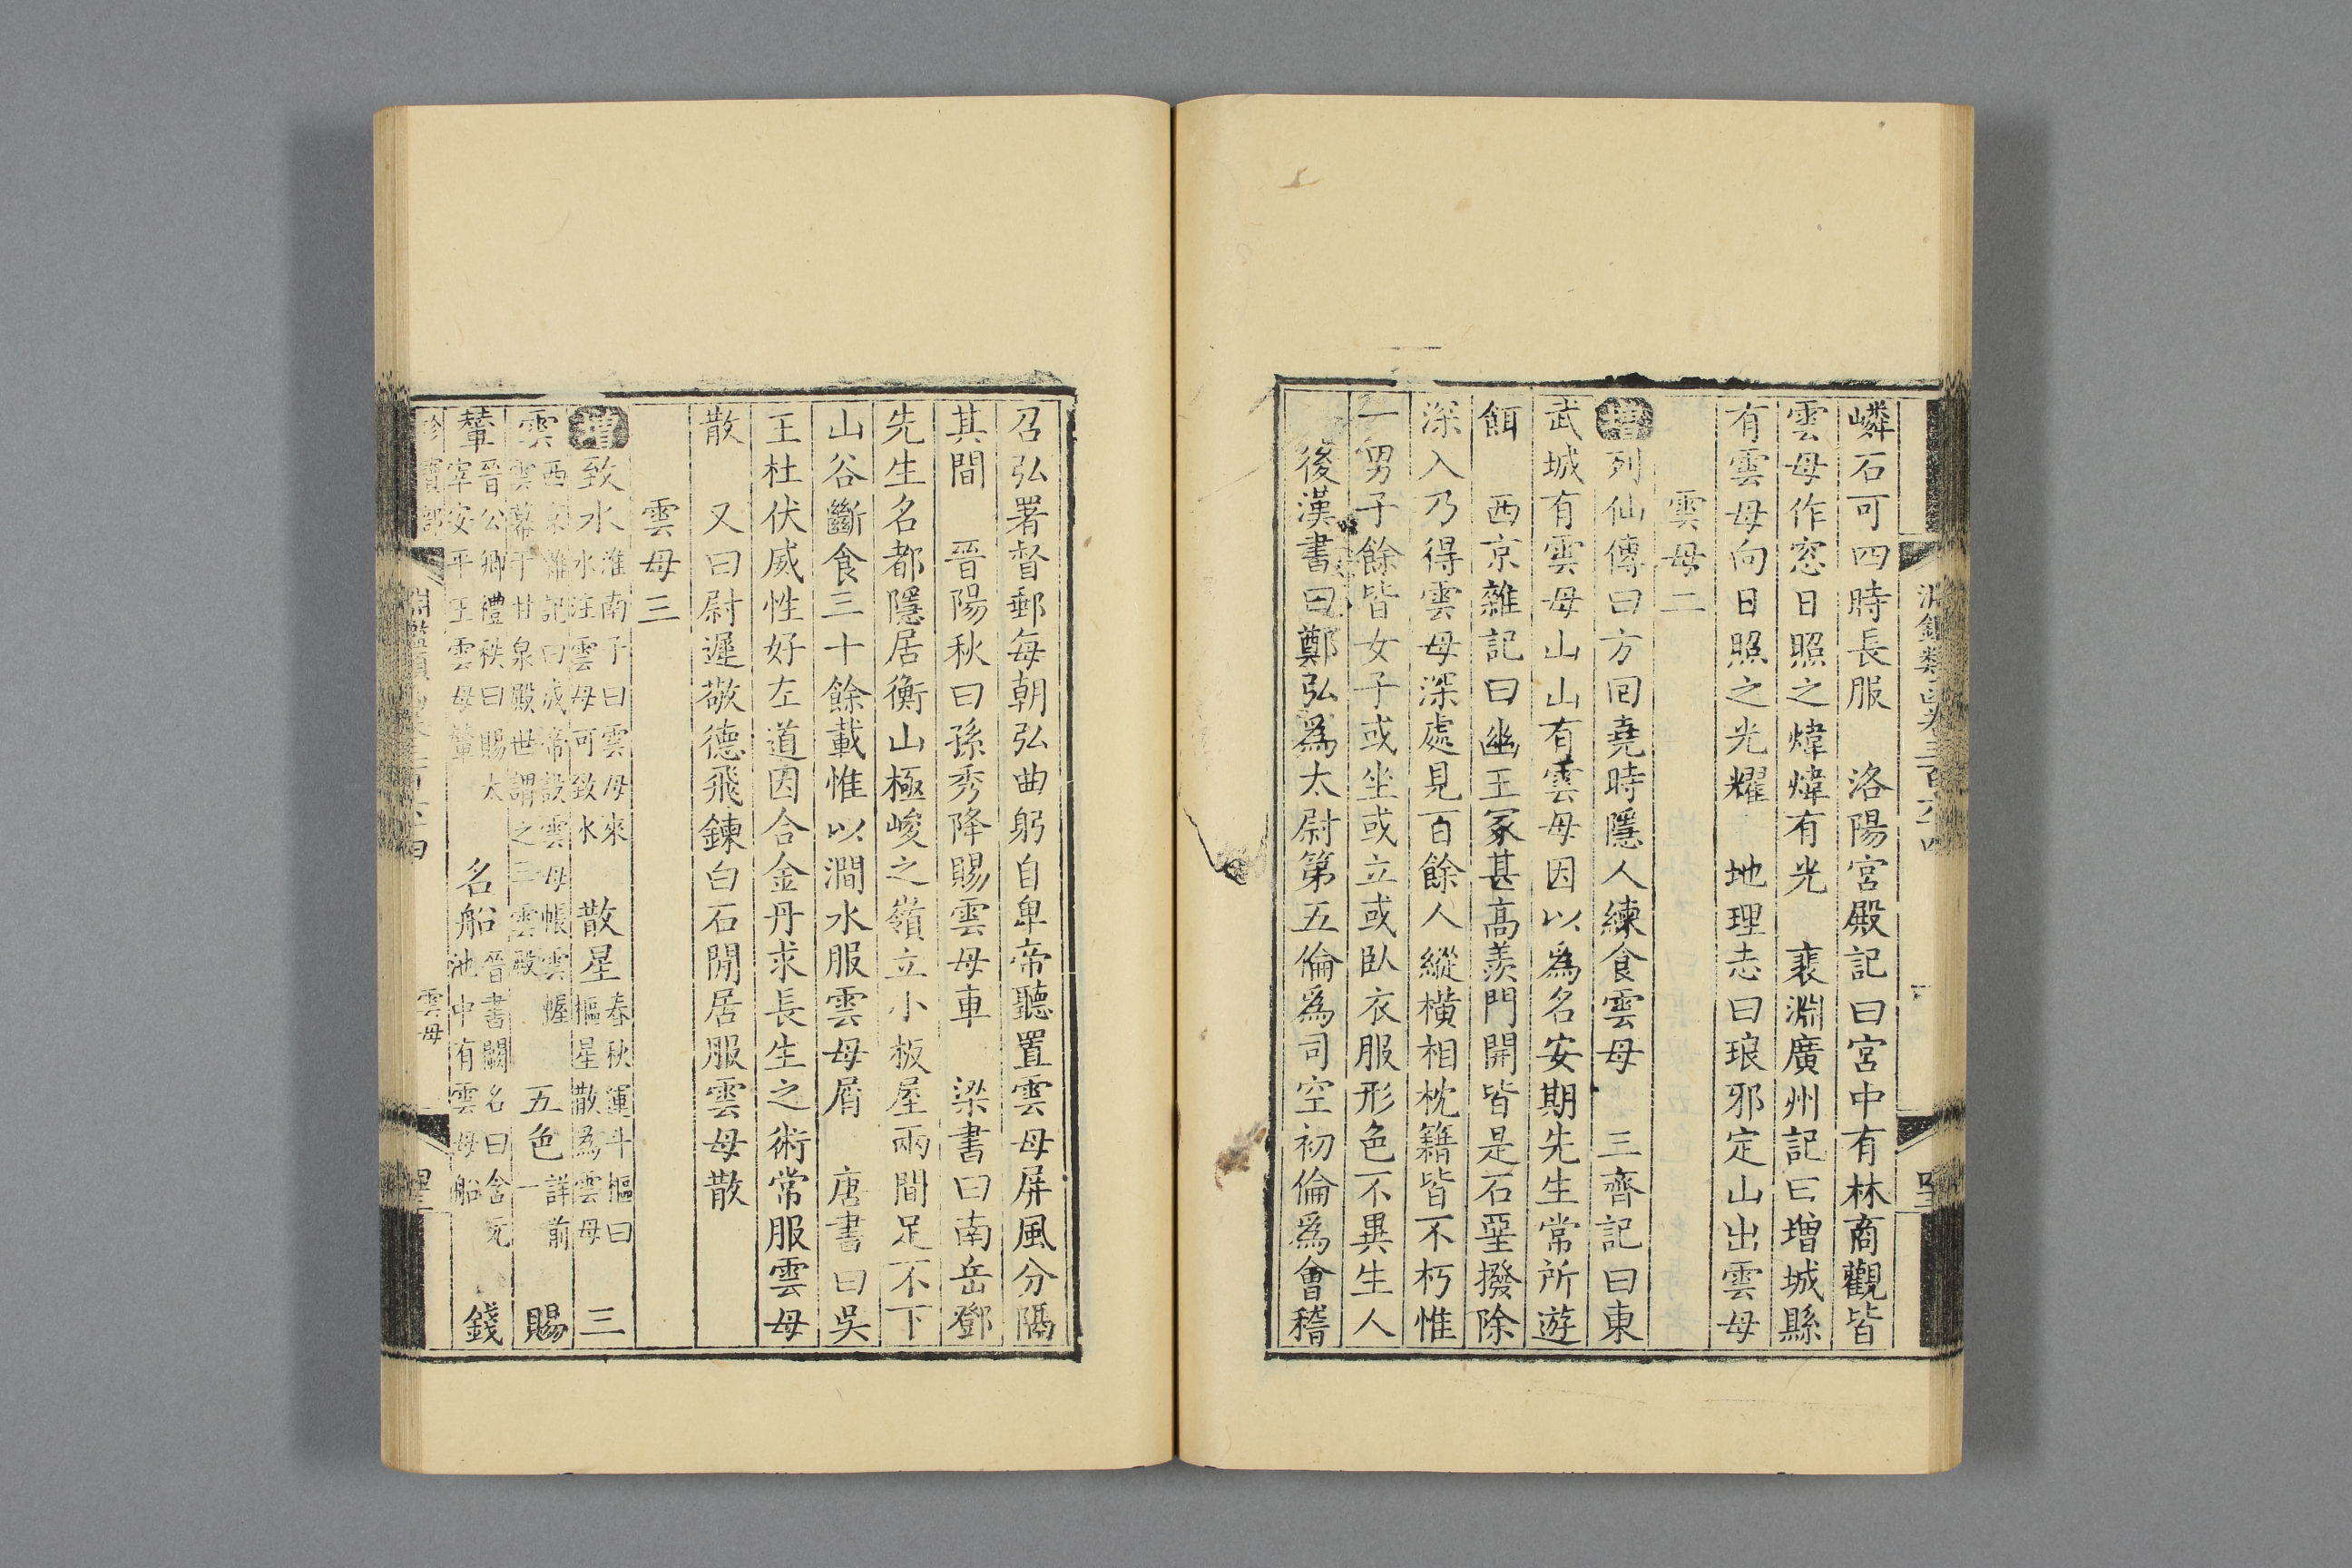 嶙石可四時長服　洛陽宮殿記曰宮中有林商觀皆
雲母作窓日照之煒煒有光　裴淵廣州記曰增城縣
有雲母向日照之光耀　地理志曰琅邪定山出雲母
雲母二
增列仙傳曰方回堯時隱人練食雲母　三齊記曰東
武城有雲母山山有雲母因以爲名安期先生常所遊
餌　西京雜記曰幽王冢甚高羨門開皆是石堊撥除
深入乃得雲母深處見百餘人縱橫相枕籍皆不朽惟
一男子餘皆女子或坐或立或臥衣服形色不異生人
後漢書曰鄭弘爲太尉第五倫爲司空初倫爲會稽
召弘署督郵每朝弘曲躬自卑帝聽置雲母屏風分隔
其間　晉陽秋曰孫秀降賜雲母車　梁書曰南岳鄧
先生名都隱居衡山極峻之嶺立小板屋兩間足不下
山谷斷食三十餘載惟以澗水服雲母屑　唐書曰吳
王杜伏威性好左道因合金丹求長生之術常服雲母
散　又曰尉遲敬德飛鍊白石閒居服雲母散
雲母三
增致水淮南子曰雲母來水水注雲母可致水　散星春秋運斗樞曰樞星散爲雲母　三
雲西京雜記曰成帝設雲母帳雲幄雲幕于甘泉殿世謂之三雲殿　五色詳前一　賜
輦晉公卿禮秩曰賜太宰安平王雲母輦　名船晉書闕名曰含元池中有雲母船　錢
雲母